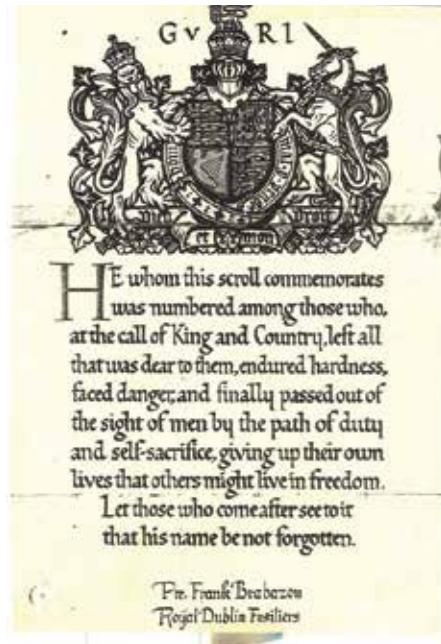 G v R I
Dieu et mon Droit
HE whom this scroll commemorates
was numbered among those who,
at the call of King and Country, left all
that was dear to them, endured hardness,
faced danger, and finally passed out of
the sight of men by the path of duty
and self-sacrifice, giving up their own
lives that others might live in freedom.
Let those who come after see to it
that his name be not forgotten.
Pte. Frank Brabazon
Royal Dublin Fusiliers